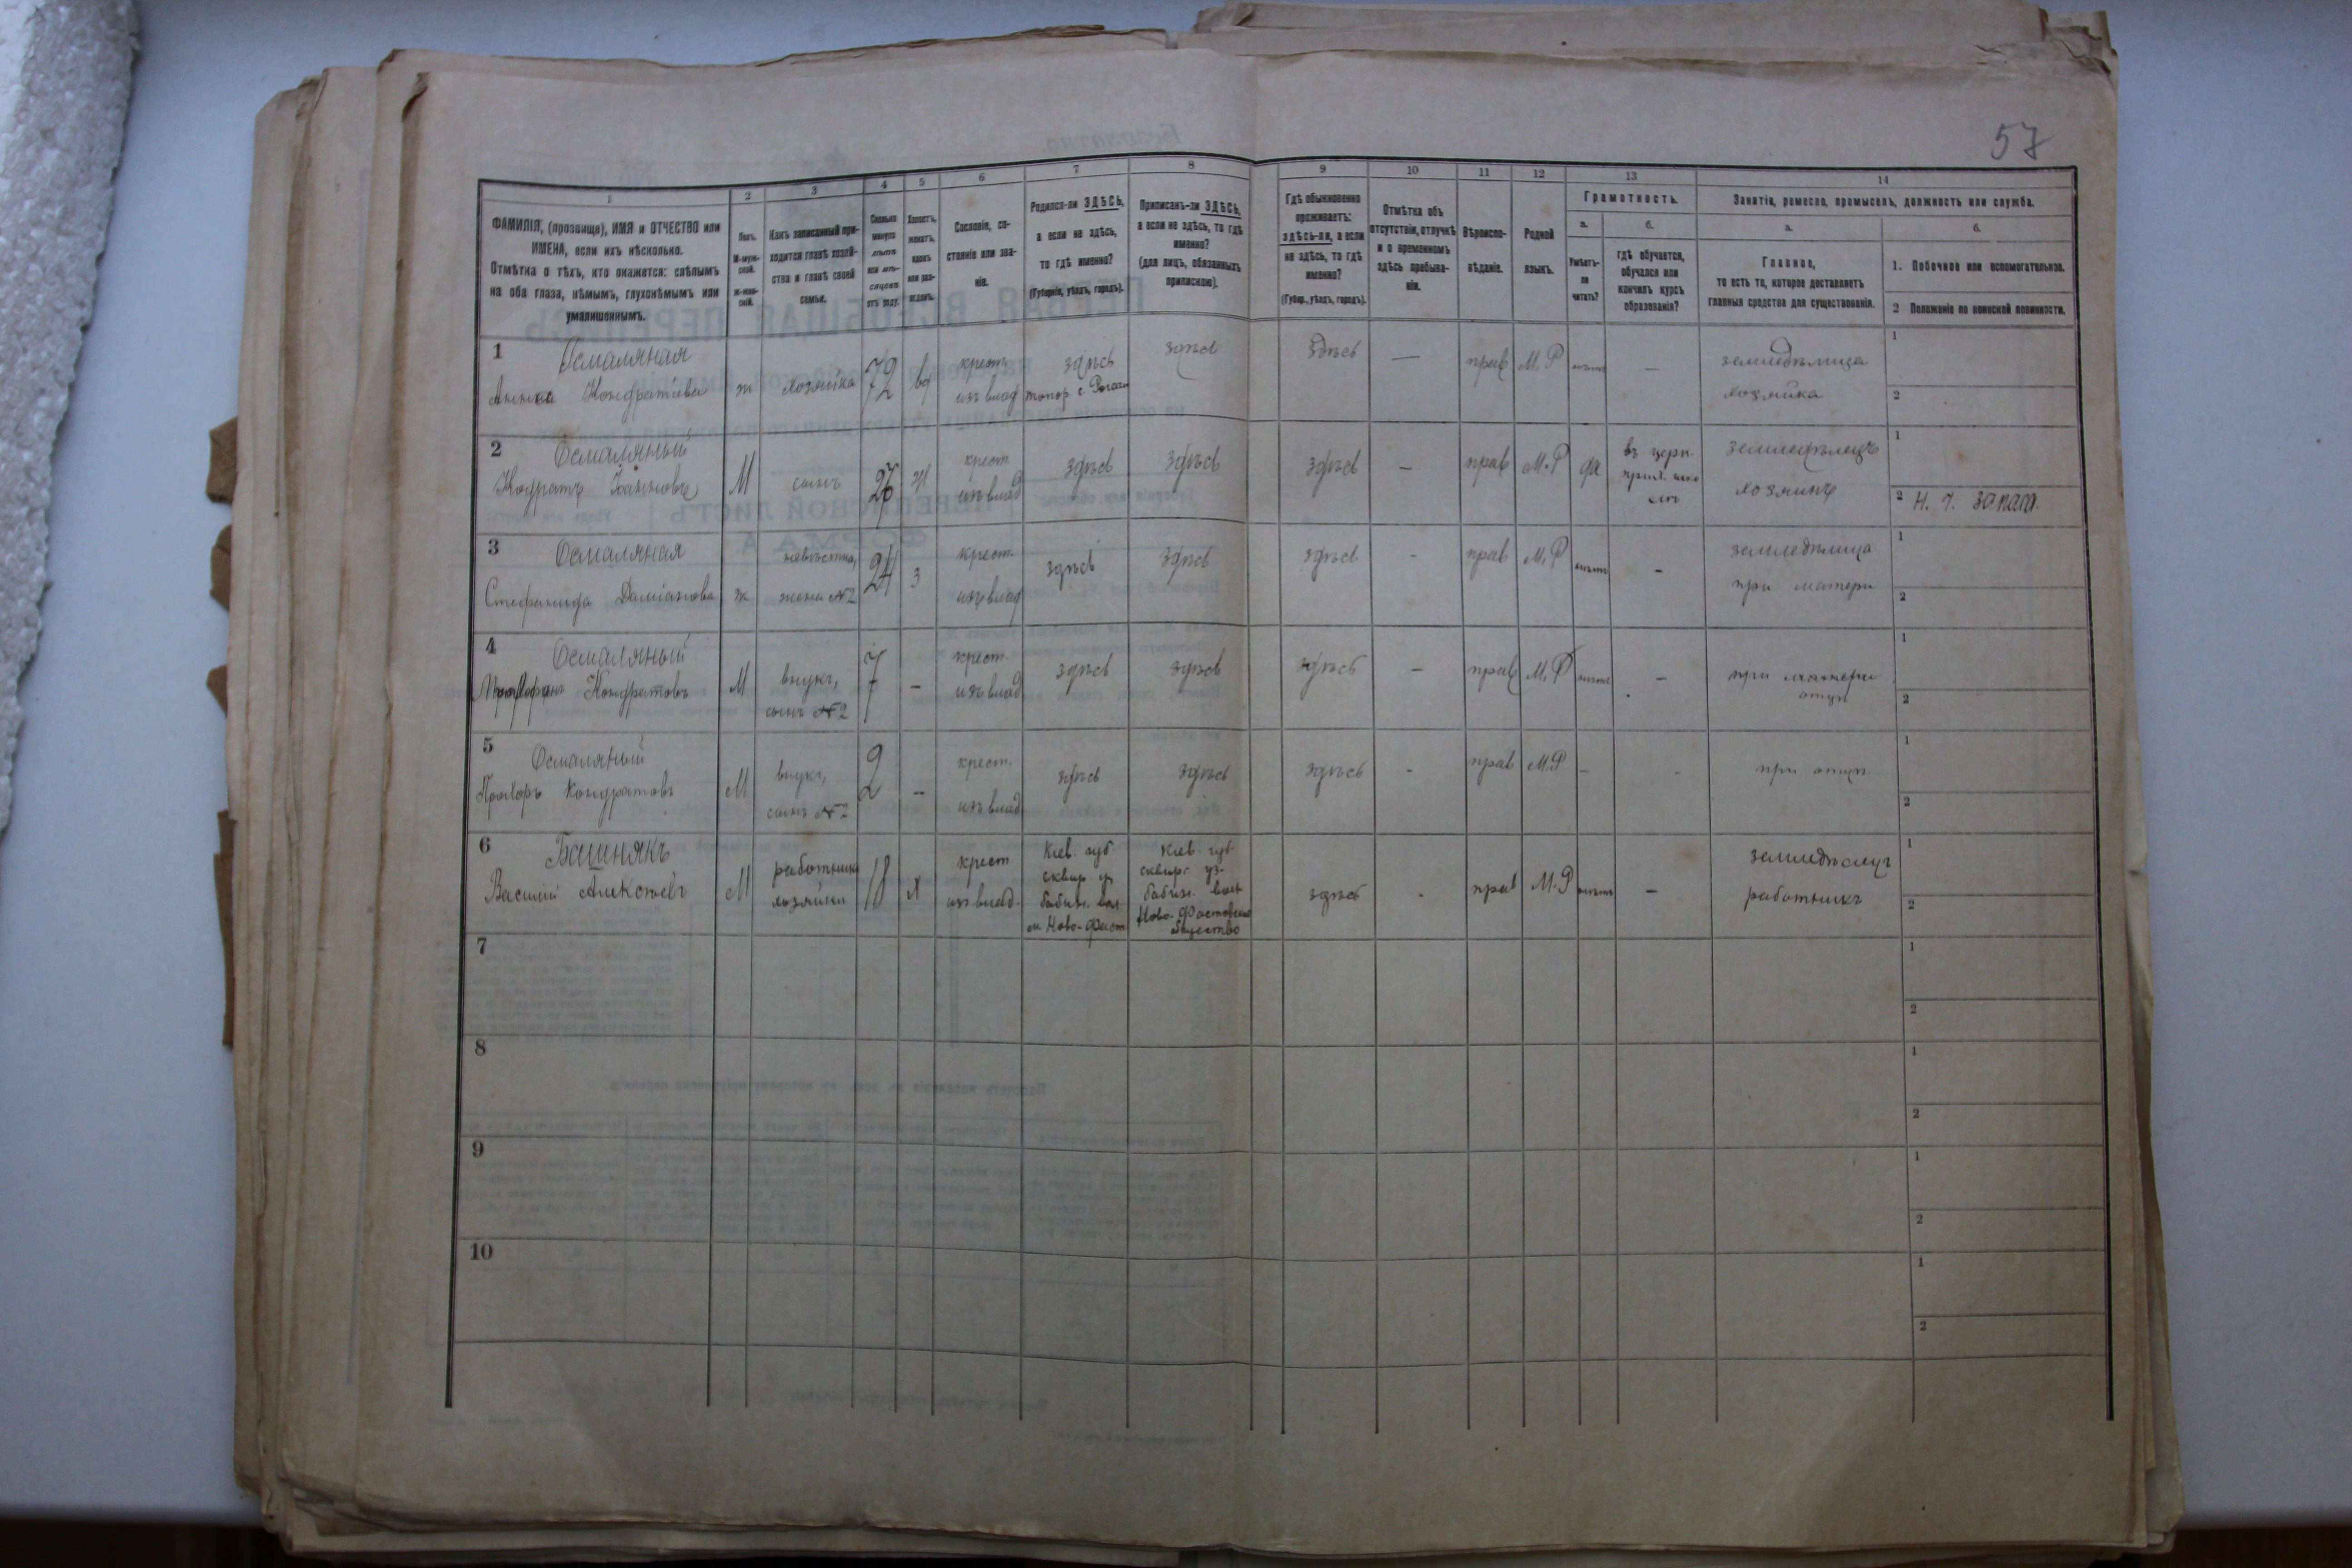 57
1 2 3 4 5 6 7 8 9 10 11 12 13 14
ФАМИЛІЯ, (прозвище), ИМЯ и ОТЧЕСТВО или
ИМЕНА, если ихъ нѣсколько.
Отмѣтка о тѣхъ, кто окажется: слѣпымъ
на оба глаза, нѣмымъ, глухонѣмымъ или
умалишеннымъ.
Полъ.
М-муж-
ской.
Ж-жен-
скій.
Какъ записанный при-
ходится главѣ хозяй-
ства и главѣ своей
семьи.
Сколько
минуло
лѣтъ
или мѣ-
сяцевъ
отъ роду.
Холостъ,
женатъ,
вдовъ
или раз-
веденъ.
Сословіе, со-
стояніе или зва-
ніе.
Родился-ли ЗДѢСЬ,
а если не здѣсь,
то гдѣ именно?
(Губернія, уѣздъ, городъ).
Приписанъ-ли ЗДѢСЬ,
а если не здѣсь, то гдѣ
именно?
(для лицъ, обязанныхъ
припискою).
Гдѣ обыкновенно
проживаетъ:
здѣсь-ли, а если
не здѣсь, то гдѣ
именно?
(Губер., уѣздъ, городъ).
Отмѣтка объ
отсутствіи, отлучкѣ
и о временномъ
здѣсь пребыва-
ніи.
Вѣроиспо-
вѣданіе.
Родной
языкъ.
Грамотность.
а.
Умѣетъ-
ли
читать?
б.
гдѣ обучается,
обучался или
кончилъ курсъ
образованія?
Занятіе, ремесло, промыселъ, должность или служба.
а.
Главное,
то есть то, которое доставляетъ
главныя средства для существованія.
б.
1. Побочное или вспомогательное.
2 Положеніе по воинской повинности.
1 Осмаляная
Анна Кондратіева ж хозяйка 72 вд крест. изъ влад здѣсь здѣсь здѣсь — прав М.Р нѣтъ — земледѣлица хозяйка 1 2
2 Осмаляный
Кодратъ Іоанновъ М сынъ 27 ж крест. изъ влад здѣсь здѣсь здѣсь — прав М.Р да въ церк. прих. земледѣлецъ хозяинъ 1 2 Н. ч. запаса.
3 Осмаляная
Стефанида Даміанова ж невѣстка, жена №2 24 з крест. изъ влад здѣсь здѣсь здѣсь - прав М.Р нѣтъ - земледѣлица при матери 1 2
4 Осмаляный
Кондратовъ М внукъ, сынъ №2 7 - крест. изъ влад здѣсь здѣсь здѣсь - прав М.Р нѣтъ - при матери 1 2
5 Осмаляный
Прохоръ Кондратовъ М внукъ, сынъ №2 2 - крест. изъ влад здѣсь здѣсь здѣсь - прав М.Р - - при отцѣ 1 2
6 Башнякъ
Василій Алексѣевъ М работникъ хозяйки 18 х крест изъ влад. Кіев. губ сквир у бабин. вол Ново-Фаст Кіев. губ сквирс уѣ. бабин. вол Ново-Фастовское общество здѣсь - прав М.Р нѣтъ - работникъ 1 2
7 1 2
8 1 2
9 1 2
10 1 2